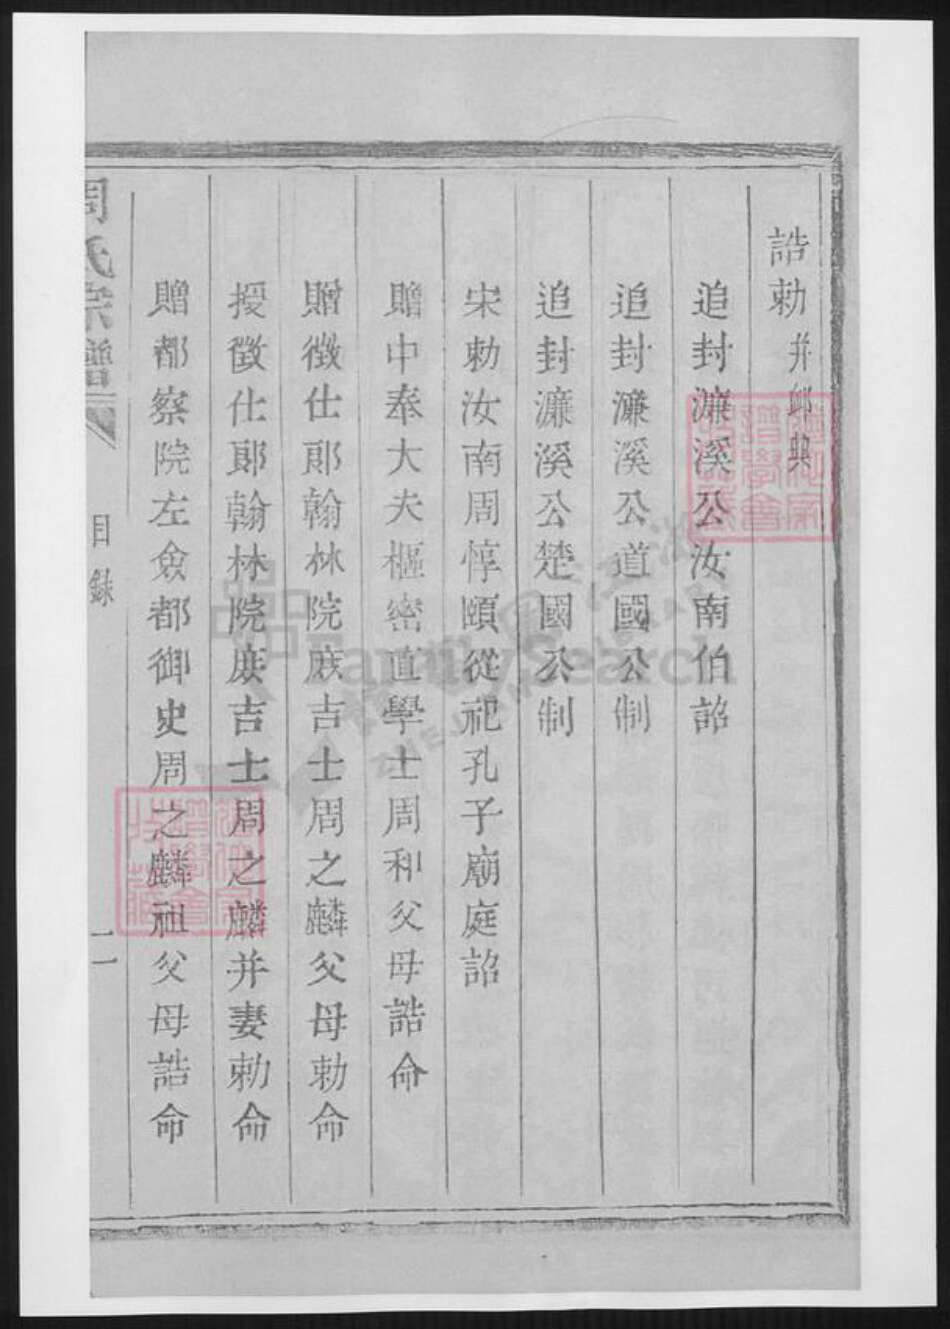 誥勅并䘏典
追封濂溪公汝南伯詔
追封濂溪公道國公制
追封濂溪公楚國公制
宋勅汝南周惇頤從祀孔子廟庭詔
贈中奉大夫樞密直學士周和父母誥命
贈徵仕郎翰林院庶吉士周之麟父母勅命
授徵仕郎翰林院庶吉士周之麟并妻勅命
贈都察院左僉都御史周之麟祖父母誥命
周氏宗譜
目錄
FamilySearch